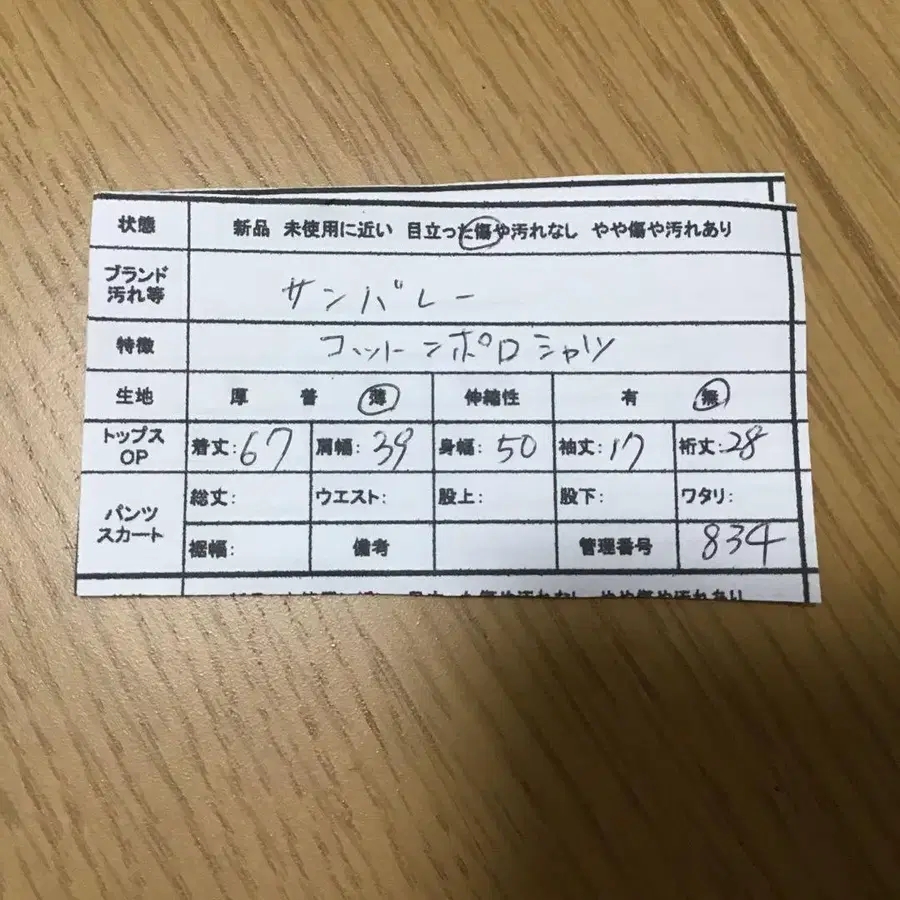 状態 新品 未使用に近い 目立った傷や汚れなし やや傷や汚れあり
ブランド
汚れ等 サンバレー
特徴 コットンポロシャツ
生地 厚 普 薄 伸縮性 有 無
トップス
OP 着丈:67 肩幅:39 身幅:50 袖丈:17 裄丈:28
パンツ
スカート 総丈: ウエスト: 股上: 股下: ワタリ:
裾幅: 備考 管理番号 834